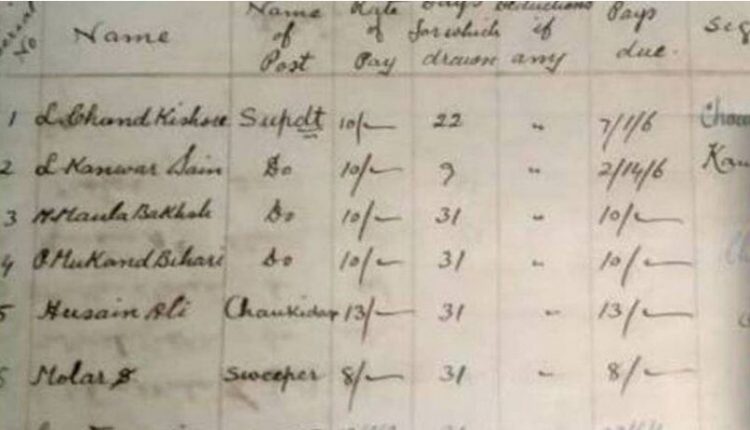 Serial No Name Name of Post Rate of Pay Days for which drawn Deductions if any Pays due. Sig
1 L Chand Kishore Supdt 10/- 22 " 7/1/6
2 L Kanwar Sain Do 10/- 9 " 2/14/6 Kan
3 M Maula Bakhsh Do 10/- 31 " 10/-
4 P Mukand Bihari Do 10/- 31 " 10/-
5 Husain Ali Chaukidar 13/- 31 " 13/-
6 Molar Sweeper 8/- 31 " 8/-